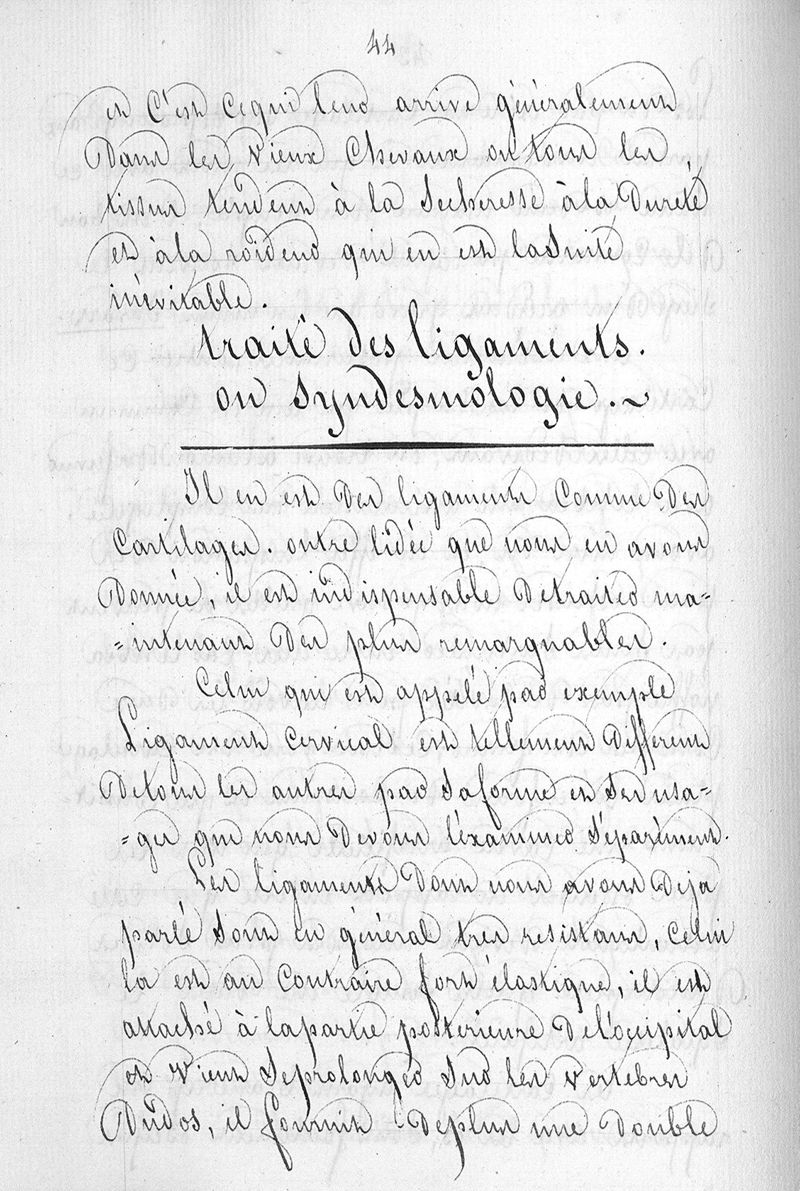 44
et c'est cequi leur arrive généralement
Dans les vieux chevaux ou tous les
tissus tendent à la secheresse à la Dureté
et à la roideur qui en est la suite
inévitable.
traité des ligaments.
ou syndesmologie. ~
Il en est Des ligaments comme Des
Cartilages. outre lidée que nous en avons
Donnée, il est indispensable Detraiter ma=
=intenant Des plus remarquables.
Celui qui est appélé par exemple
Ligament cervical est tellement Différent
Detous les autres par saforme et ses usa=
=ges qui nous Devons l'éxaminer séparèment.
Les ligaments Dont nous avons Deja
parlé sont en général tres resistans, celui
la est au contraire fort élastique, il est
attaché à lapartie posterieure De l'occipital
et vient Seprolonger sur les vertebres
Dudos, il fournit Deplus une Double